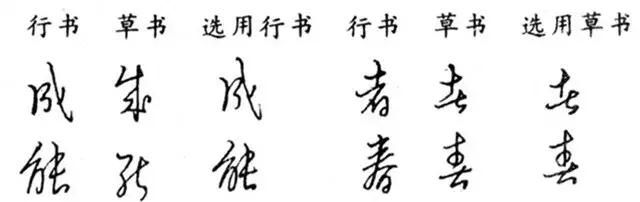 行书 草书 选用行书 行书 草书 选用草书
成 成 成 者 者 者
能 能 能 春 春 春